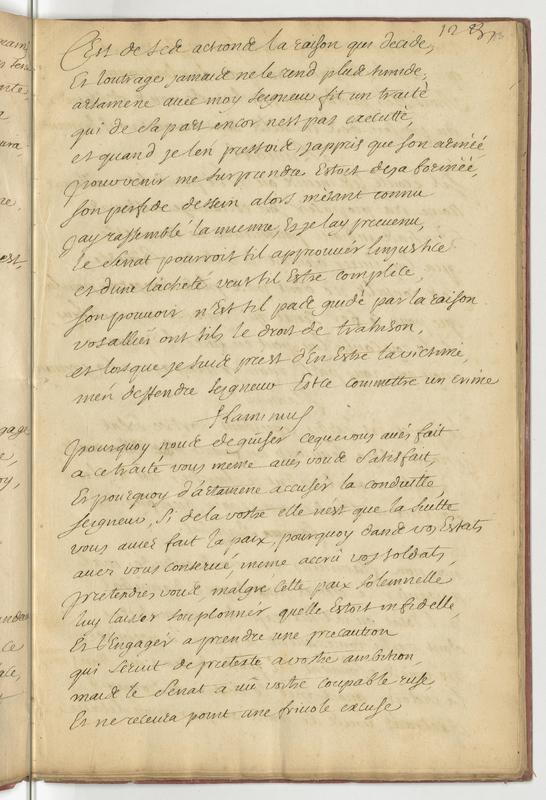 12
C'Est de sede actionde la raison qui decide,
Et l'outrage jamaide ne le rend plude timide,
artamene avec moy seigneur fit un traité
qui de sa part encor n'est pas executté,
et quand je l'en pressoide j'appris que son armeéé
pour venir me surprendre Estoit deja formeéé,
son perfide dessein alors m'estant connu
J'ay rassemblé la mienne, Et je l'ay prevenu,
le senat pourroit til approuvér l'injustice
et d'une lacheté veut til Estre complece,
son pouvoir n'Est til pade guidé par la raison
vos alliéz ont tils le droit de trahison,
et lorsque je suide prest d'En Estre la victime,
m'en deffendre seigneur Est ce commettre un crime
flaminius
pourquoy noude deguisér ceque vous avéz fait
a ce traité vous même avéz voude satisfait,
Et pourquoy d'artamene accusér la conduitte
seigneur, si de la vostre elle n'est que la suitte
vous aviez fait la paix, pourquoy dande vos Estats
aviéz vous conservé, meme accrû vos soldats,
pretendiéz voude, malgré cette paix solemnelle
luy laisser soupçonnér quelle Estoit infidelle,
Et l'Engager a prendre une precaution
qui servit de pretexte a vostre ambition,
maide le senat a vû vostre coupable ruse
Et ne recevra point une frivole excuse